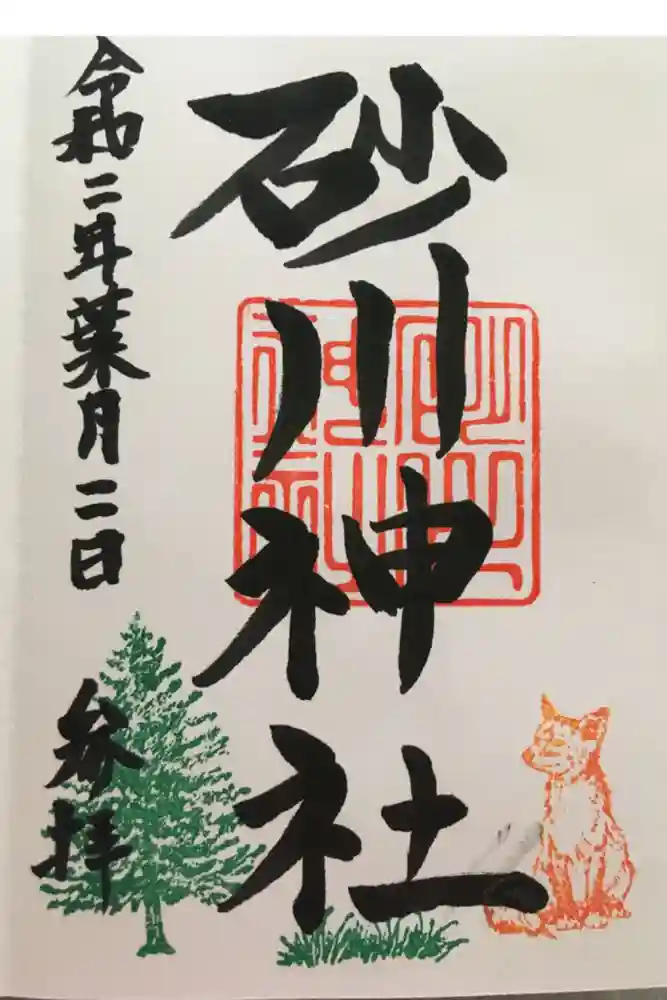 砂川神社
令和二年葉月二日
参拝